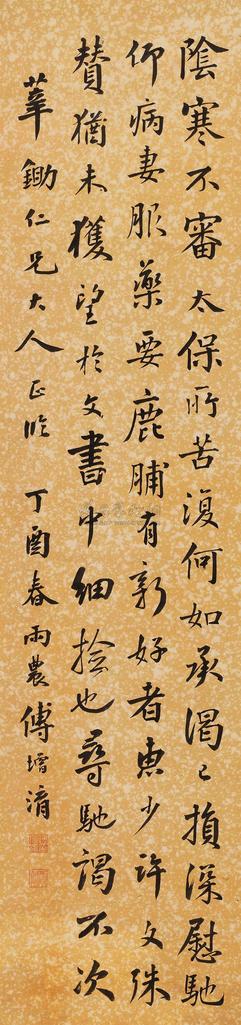 陰寒不審太保所苦復何如承渴已損深慰馳
仰病妻服藥要鹿脯有新好者惠少許文殊
贊猶未獲望於文書中細撿也尋馳謁不次
莘鋤仁兄大人正 丁酉春雨農傅增淯